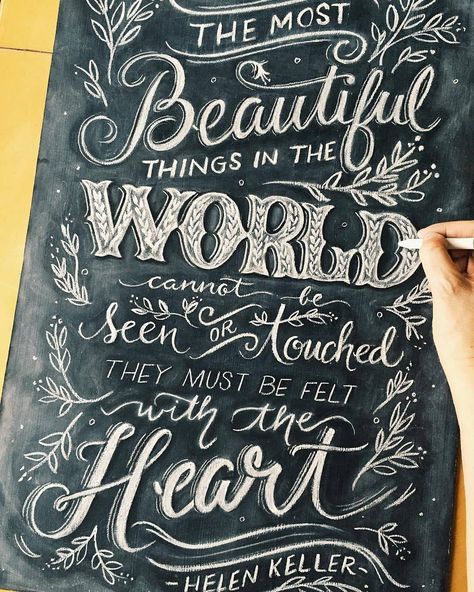 THE MOST
Beautiful
THINGS IN THE
WORLD
cannot be
seen OR touched
THEY MUST BE FELT
with the
Heart
-HELEN KELLER-